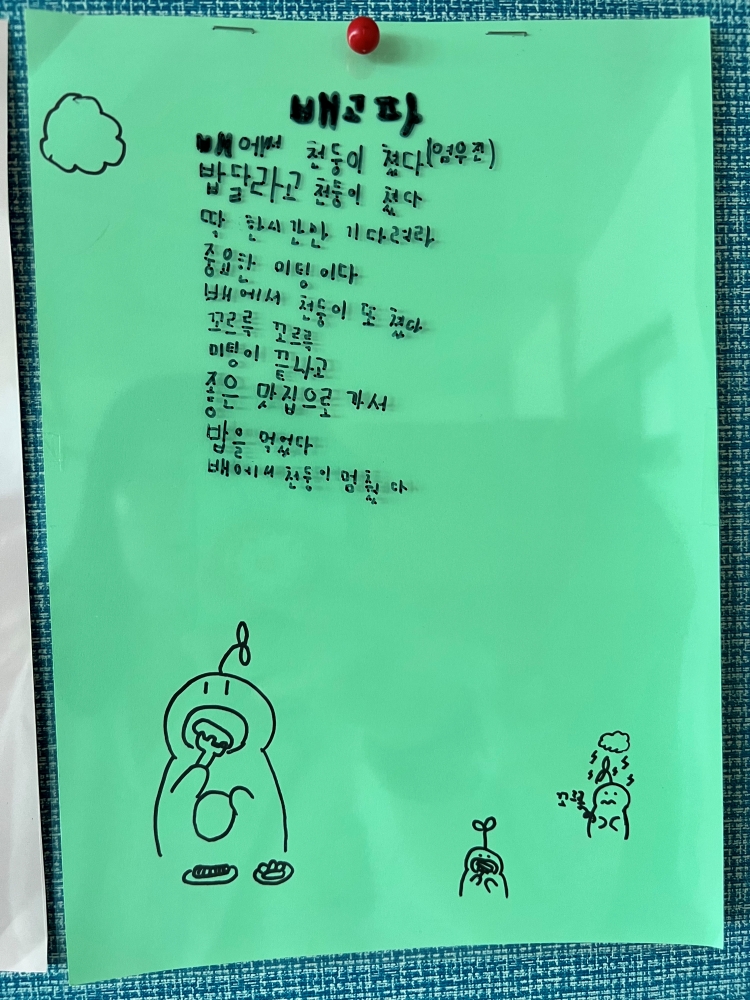 배고파
배에서 천둥이 쳤다(염우진)
밥달라고 천둥이 쳤다
딱 한시간만 기다려라
중요한 미팅이다
배에서 천둥이 또 쳤다
꼬르륵 꼬르륵
미팅이 끝나고
좋은 맛집으로 가서
밥을 먹었다
배에서 천둥이 멈췄다
꼬르륵